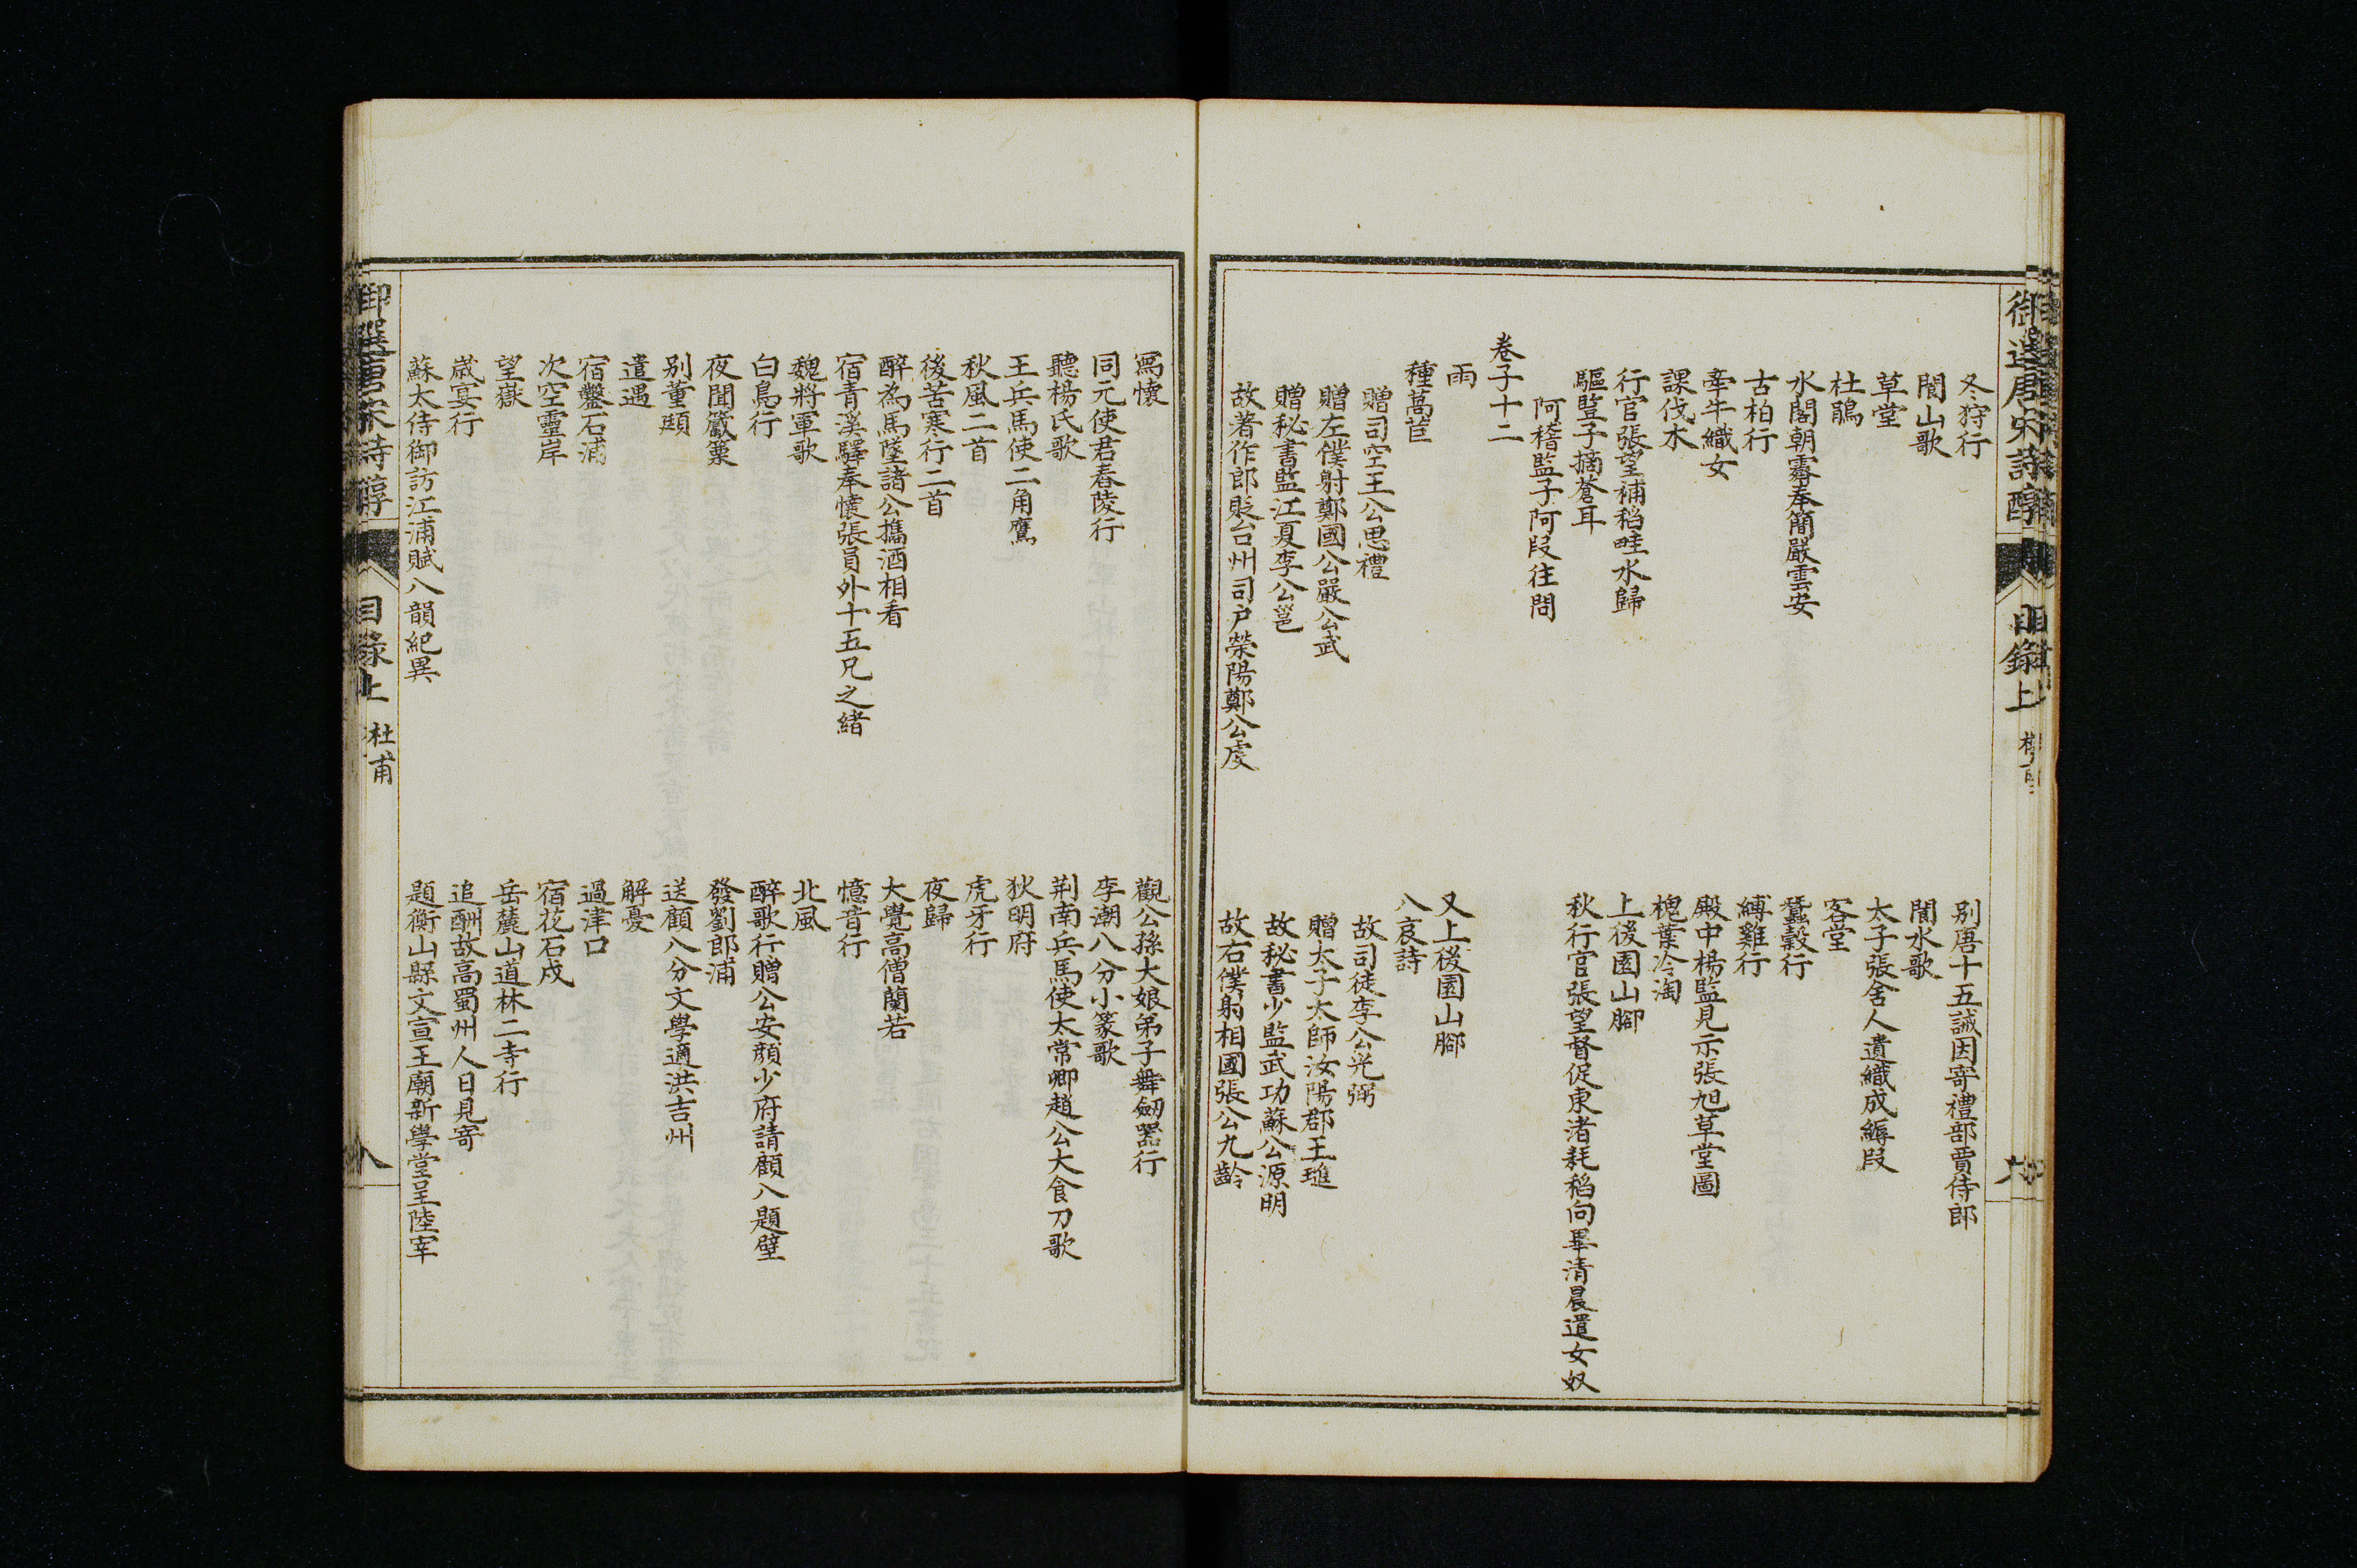 御選唐宋詩醇 目錄上
冬狩行
別唐十五誡因寄禮部賈侍郎
閬山歌
閬水歌
草堂
太子張舍人遺織成縟段
杜鵑
客堂
水閣朝霽奉簡嚴雲安
蠶穀行
古柏行
縛雞行
牽牛織女
殿中楊監見示張旭草堂圖
課伐木
槐葉冷淘
行官張望補稻畦水歸
上後園山腳
驅豎子摘蒼耳
秋行官張望督促東渚耗稻向畢清晨遣女奴
阿稽監子阿段往問
卷子十二
雨
又上後園山腳
種萵苣
八哀詩
贈司空王公思禮
故司徒李公光弼
贈左僕射鄭國公嚴公武
贈太子太師汝陽郡王璡
贈秘書監江夏李公邕
故秘書少監武功蘇公源明
故著作郎貶台州司戶榮陽鄭公虔
故右僕射相國張公九齡
寫懷
觀公孫大娘弟子舞劒器行
同元使君舂陵行
李潮八分小篆歌
聽楊氏歌
荆南兵馬使太常卿趙公大食刀歌
王兵馬使二角鷹
狄明府
秋風二首
虎牙行
後苦寒行二首
夜歸
醉為馬墜諸公攜酒相看
大覺高僧蘭若
宿青溪驛奉懷張員外十五兄之緒
憶昔行
魏將軍歌
北風
白鳧行
醉歌行贈公安顏少府請顧八題壁
夜聞觱篥
發劉郎浦
別董頲
送顧八分文學適洪吉州
遣遇
解憂
宿鑿石浦
過津口
次空靈岸
宿花石戍
望嶽
岳麓山道林二寺行
歲宴行
追酬故高蜀州人日見寄
蘇大侍御訪江浦賦八韻紀異
題衡山縣文宣王廟新學堂呈陸宰
御選唐宋詩醇 目錄上 杜甫 八